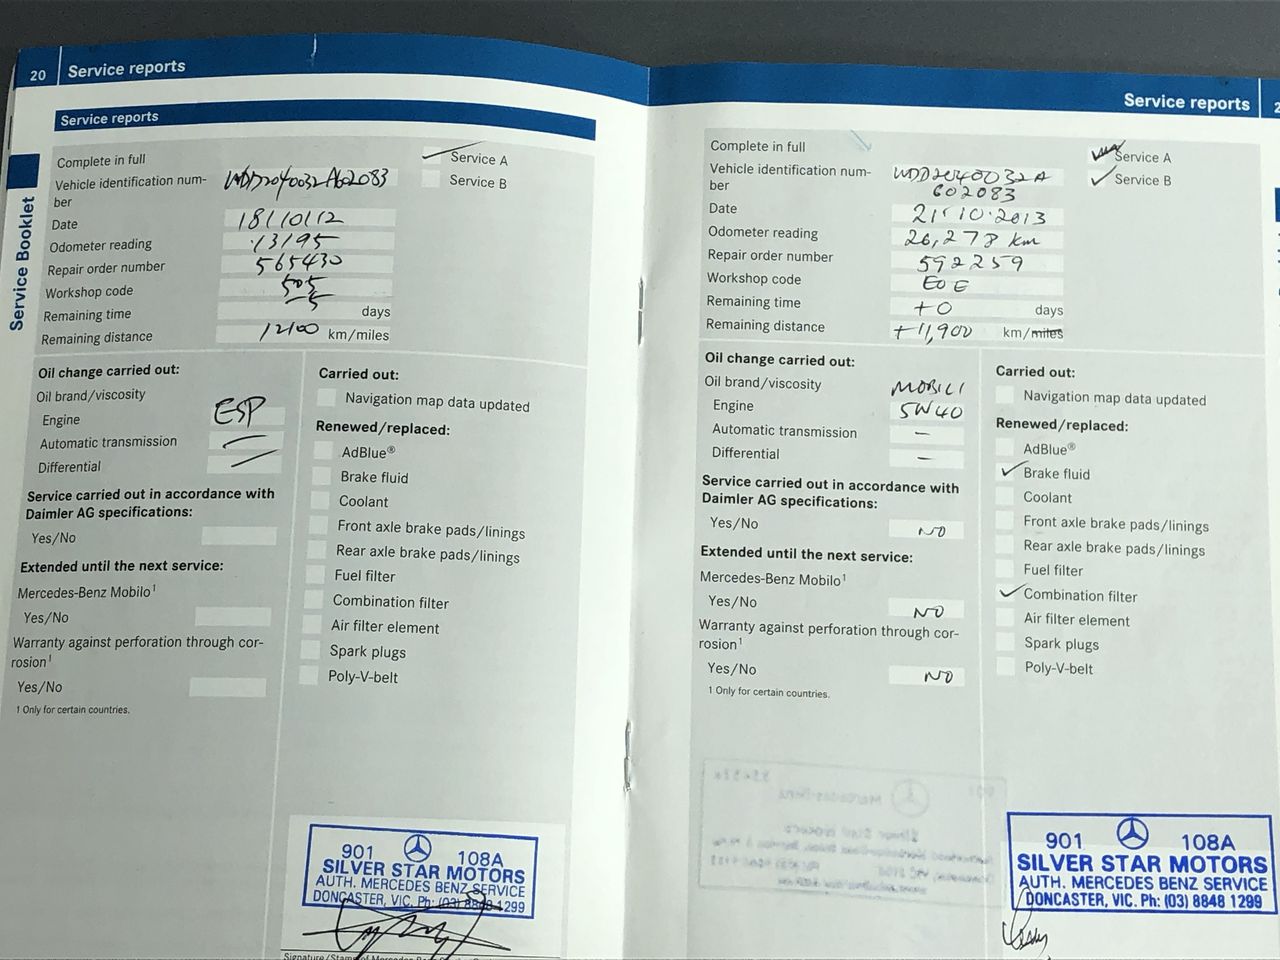 20 Service reports
Service reports
Service Booklet
Complete in full
Service A
Vehicle identification num-
ber
WDD2040032A602083
Service B
Date 18/10/12
Odometer reading 13195
Repair order number 565430
Workshop code 505
Remaining time -5 days
Remaining distance 12100 km/miles
Oil change carried out:
Oil brand/viscosity
Engine ESP
Automatic transmission —
Differential —
Service carried out in accordance with
Daimler AG specifications:
Yes/No
Extended until the next service:
Mercedes-Benz Mobilo¹
Yes/No
Warranty against perforation through cor-
rosion¹
Yes/No
1 Only for certain countries.
Carried out:
Navigation map data updated
Renewed/replaced:
AdBlue®
Brake fluid
Coolant
Front axle brake pads/linings
Rear axle brake pads/linings
Fuel filter
Combination filter
Air filter element
Spark plugs
Poly-V-belt
901 108A
SILVER STAR MOTORS
AUTH. MERCEDES BENZ SERVICE
DONCASTER, VIC. Ph: (03) 8848 1299
Service reports
Complete in full
Service A
Vehicle identification num-
ber
WDD2040032A
602083
Service B
Date 21.10.2013
Odometer reading 26,278 km
Repair order number 592259
Workshop code EOE
Remaining time +0 days
Remaining distance +11,900 km/miles
Oil change carried out:
Oil brand/viscosity MOBIL 1
Engine 5W40
Automatic transmission —
Differential —
Service carried out in accordance with
Daimler AG specifications:
Yes/No NO
Extended until the next service:
Mercedes-Benz Mobilo¹
Yes/No NO
Warranty against perforation through cor-
rosion¹
Yes/No NO
1 Only for certain countries.
Carried out:
Navigation map data updated
Renewed/replaced:
AdBlue®
Brake fluid
Coolant
Front axle brake pads/linings
Rear axle brake pads/linings
Fuel filter
Combination filter
Air filter element
Spark plugs
Poly-V-belt
901 108A
SILVER STAR MOTORS
AUTH. MERCEDES BENZ SERVICE
DONCASTER, VIC. Ph: (03) 8848 1299